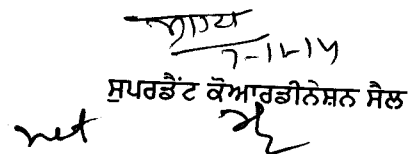 7-11-14
ਸੁਪਰਡੈਂਟ ਕੋਆਰਡੀਨੇਸ਼ਨ ਸੈਲ
net